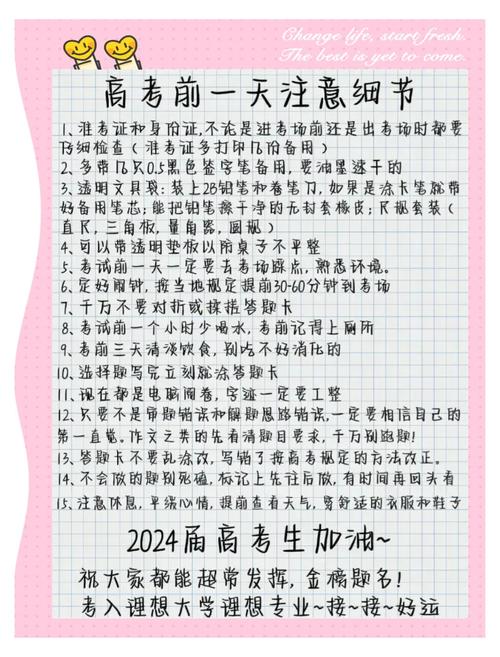 Change life, start fresh.
The best is yet to come.
高考前一天注意细节
1、准考证和身份证,不论是进考场前还是出考场时都要
仔细检查(准考证多打印几份备用)
2、多带几只0.5黑色签字笔备用,要油墨速干的
3、透明文具袋:装上2B铅笔和卷笔刀,如果是涂卡笔就带
好备用笔芯;能把铅笔擦干净的无封套橡皮;尺规套装(
直尺,三角板,量角器,圆规)
4、可以带透明垫板以防桌子不平整
5、考试前一天一定要去考场踩点,熟悉环境。
6、定好闹钟,按当地规定提前30-60分钟到考场
7、千万不要对折或揉搓答题卡
8、考试前一个小时少喝水,考前记得上厕所
9、考前三天清淡饮食,别吃不好消化的
10、选择题写完立刻就涂答题卡
11、现在都是电脑阅卷,字迹一定要工整
12、只要不是审题错误和解题思路错误,一定要相信自己的
第一直觉。作文之类的先看清题目要求,千万别跑题!
13、答题卡不要乱涂改,写错了按高考规定的方法改正。
14、不会做的题别死磕,标记上先往后做,有时间再回头看
15、注意休息,平缓心情,提前查看天气,穿舒适的衣服和鞋子
2024届高考生加油~
祝大家都能超常发挥,金榜题名!
考入理想大学理想专业~接~接~好运